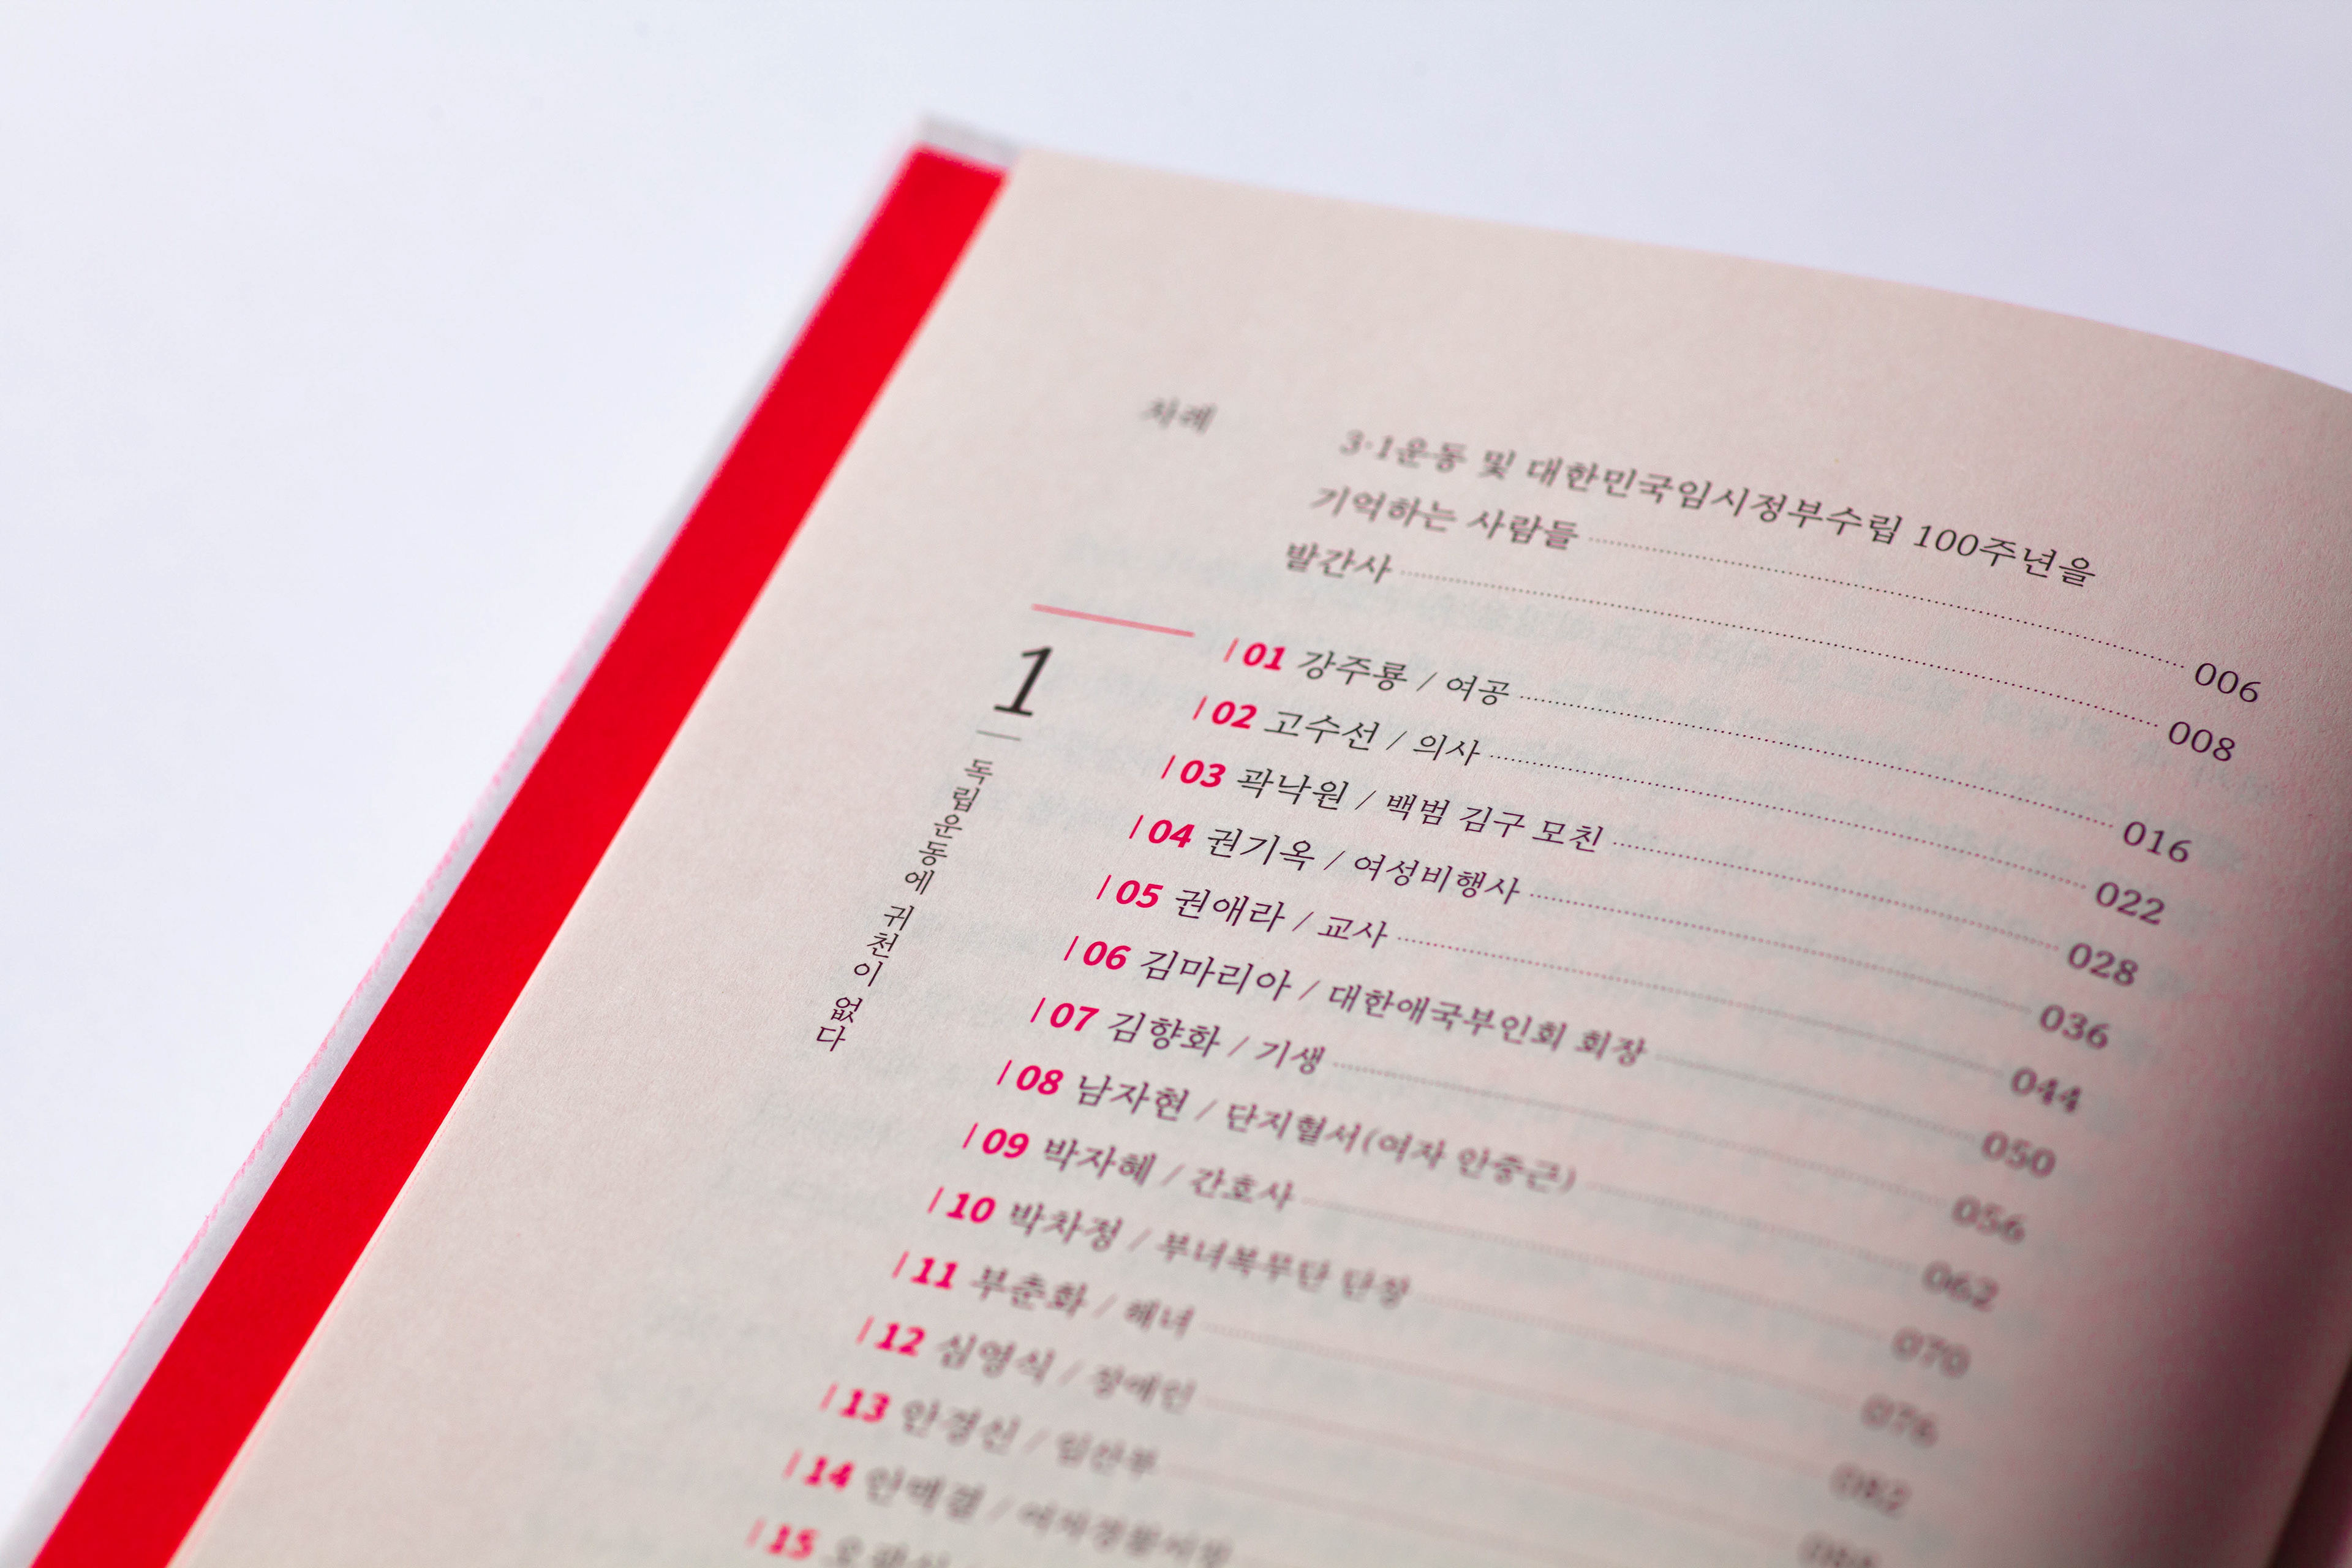 차례
3·1운동 및 대한민국임시정부수립 100주년을
기억하는 사람들 006
발간사 008
1
독립운동에 귀천이 없다
01 강주룡 / 여공 016
02 고수선 / 의사 022
03 곽낙원 / 백범 김구 모친 028
04 권기옥 / 여성비행사 036
05 권애라 / 교사 044
06 김마리아 / 대한애국부인회 회장 050
07 김향화 / 기생 056
08 남자현 / 단지혈서(여자 안중근) 062
09 박자혜 / 간호사 070
10 박차정 / 부녀복무단 단장 076
11 부춘화 / 해녀 082
12 심영식 / 장애인
13 안경신 / 임산부
14 안맥결 / 여자경찰서장
15